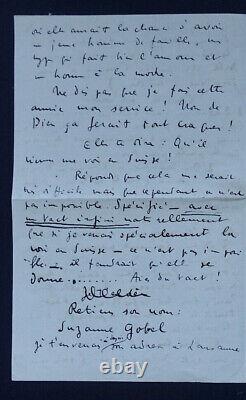 où elle aurait la chance d'avoir
un jeune homme de famille, un
type qui fait bien l'amour et
un homme à la mode.
Ne dis pas que je fais cette
année mon service ! Nom de
Dieu ça ferait tout craquer !
Elle te dira : Qu'il
vienne me voir en Suisse !
Répond que cela me serait
difficile mais que cependant ce n'est
pas impossible. Spécifie — avec
un tact infini naturellement
que si je venais spécialement la
voir en Suisse — ce n'est pas impossible
—, il faudrait qu'elle se
donne......... Aie du tact !
Retiens son nom :
Suzanne Gobel
je t'enverrai son adresse à Lausanne
© Pictures